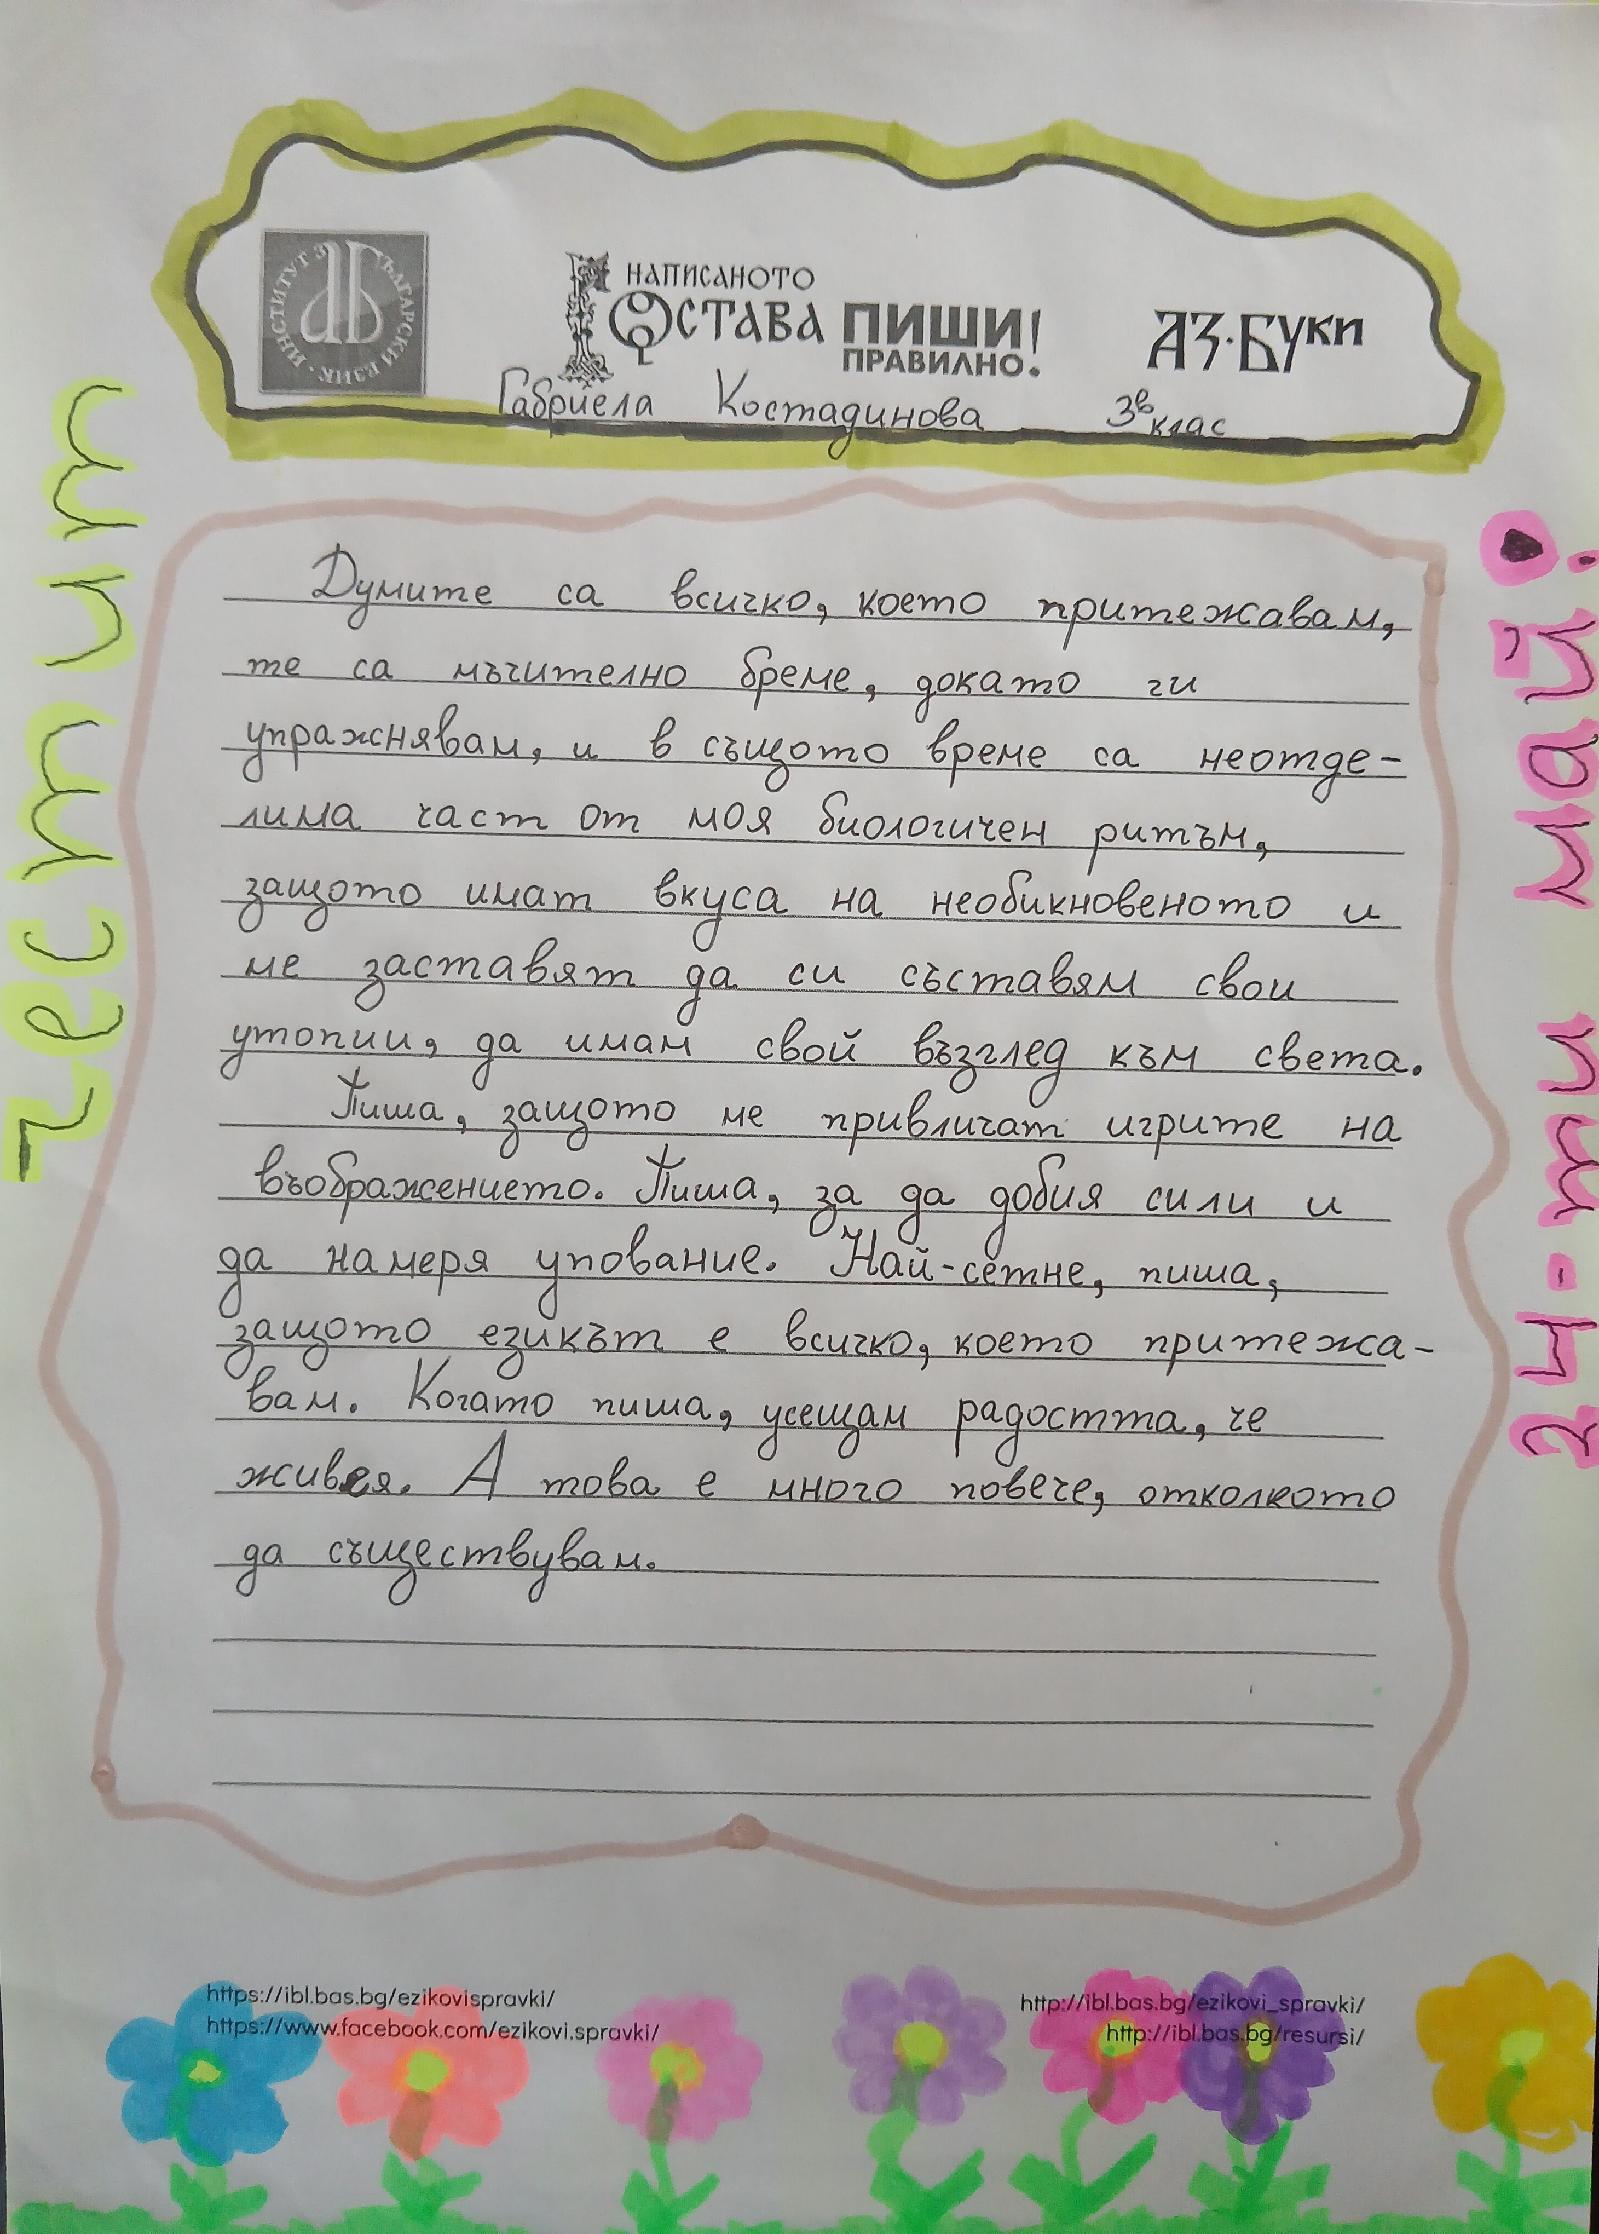 ИНСТИТУТ ЗА БЪЛГАРСКИ ЕЗИК
НАПИСАНОТО
ОСТАВА ПИШИ!
ПРАВИЛНО.
АЗ·БУКИ
Габриела Костадинова 3в клас
Честит
24-ти май!
Думите са всичко, което притежавам,
те са мъчително бреме, докато ги
упражнявам, и в същото време са неотде-
лима част от моя биологичен ритъм,
защото имат вкуса на необикновеното и
ме заставят да си съставям свои
утопии, да имам свой възглед към света.
Пиша, защото ме привличат игрите на
въображението. Пиша, за да добия сили и
да намеря упование. Най-сетне, пиша,
защото езикът е всичко, което притежа-
вам. Когато пиша, усещам радостта, че
живея. А това е много повече, отколкото
да съществувам.
https://ibl.bas.bg/ezikovispravki/
https://www.facebook.com/ezikovi.spravki/
http://ibl.bas.bg/ezikovi_spravki/
http://ibl.bas.bg/resursi/